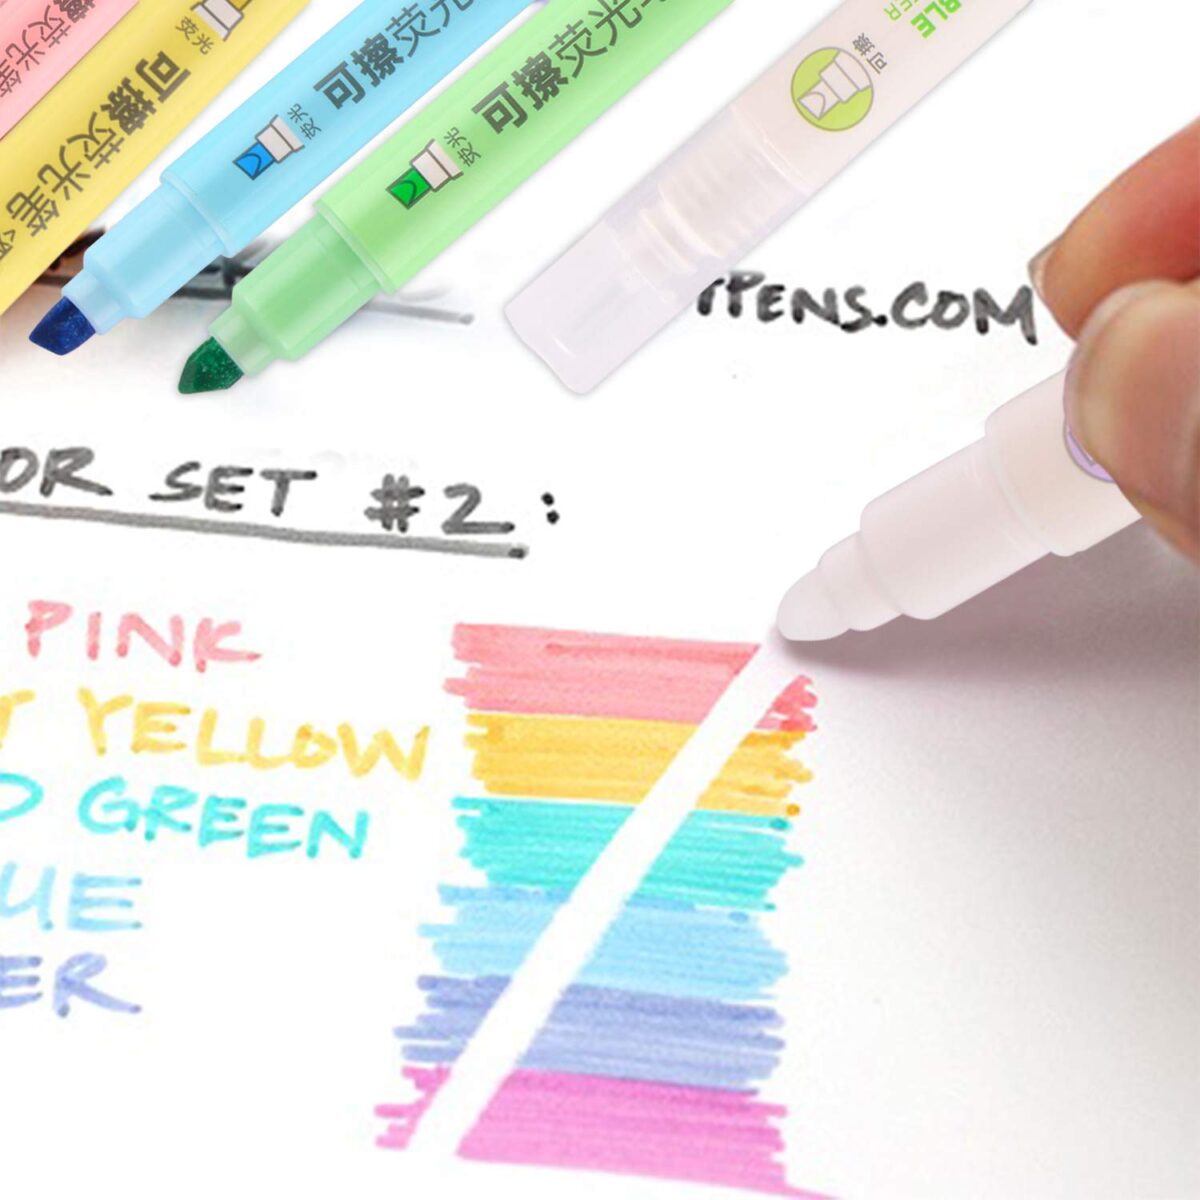 可擦荧光笔
荧光
可擦荧光笔
荧光
可擦荧光
荧光
可擦荧光
可擦
TPENS.COM
OR SET #2:
PINK
T YELLOW
GREEN
UE
ER